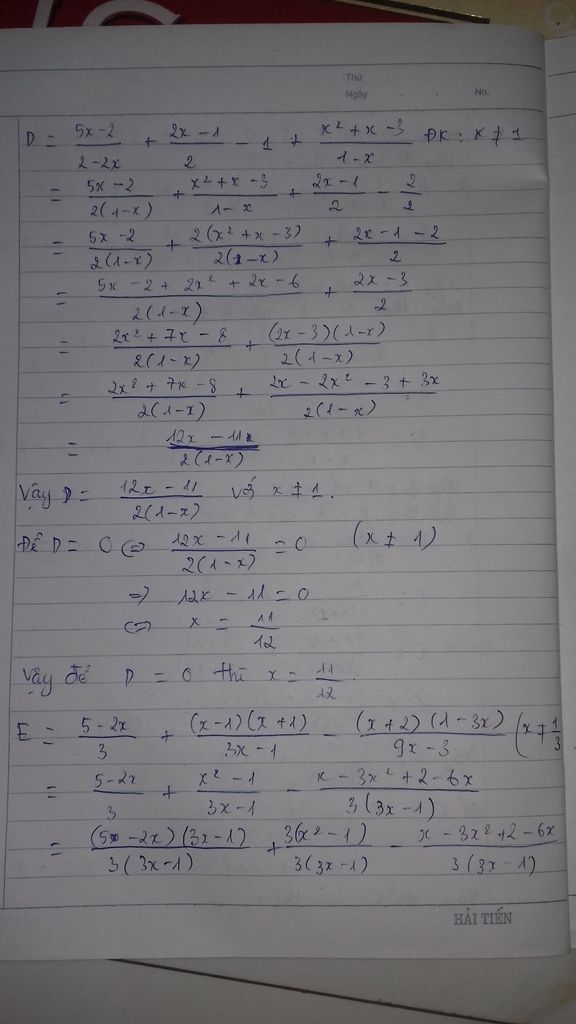 Thứ
Ngày . . No.
D = \frac{5x-2}{2-2x} + \frac{2x-1}{2} - 1 + \frac{x^2+x-3}{1-x} ĐK: x ≠ 1
= \frac{5x-2}{2(1-x)} + \frac{x^2+x-3}{1-x} + \frac{2x-1}{2} - \frac{2}{2}
= \frac{5x-2}{2(1-x)} + \frac{2(x^2+x-3)}{2(1-x)} + \frac{2x-1-2}{2}
= \frac{5x-2+2x^2+2x-6}{2(1-x)} + \frac{2x-3}{2}
= \frac{2x^2+7x-8}{2(1-x)} + \frac{(2x-3)(1-x)}{2(1-x)}
= \frac{2x^2+7x-8}{2(1-x)} + \frac{2x-2x^2-3+3x}{2(1-x)}
= \frac{12x-11}{2(1-x)}
Vậy D = \frac{12x-11}{2(1-x)} với x ≠ 1.
Để D = 0 ⇔ \frac{12x-11}{2(1-x)} = 0 (x ≠ 1)
⇒ 12x - 11 = 0
⇔ x = \frac{11}{12}
Vậy để D = 0 thì x = \frac{11}{12}.
E = \frac{5-2x}{3} + \frac{(x-1)(x+1)}{3x-1} - \frac{(x+2)(1-3x)}{9x-3} (x ≠ \frac{1}{3}
= \frac{5-2x}{3} + \frac{x^2-1}{3x-1} - \frac{x-3x^2+2-6x}{3(3x-1)}
= \frac{(5x-2x)(3x-1)}{3(3x-1)} + \frac{3(x^2-1)}{3(3x-1)} - \frac{x-3x^2+2-6x}{3(3x-1)}
HẢI TIẾN